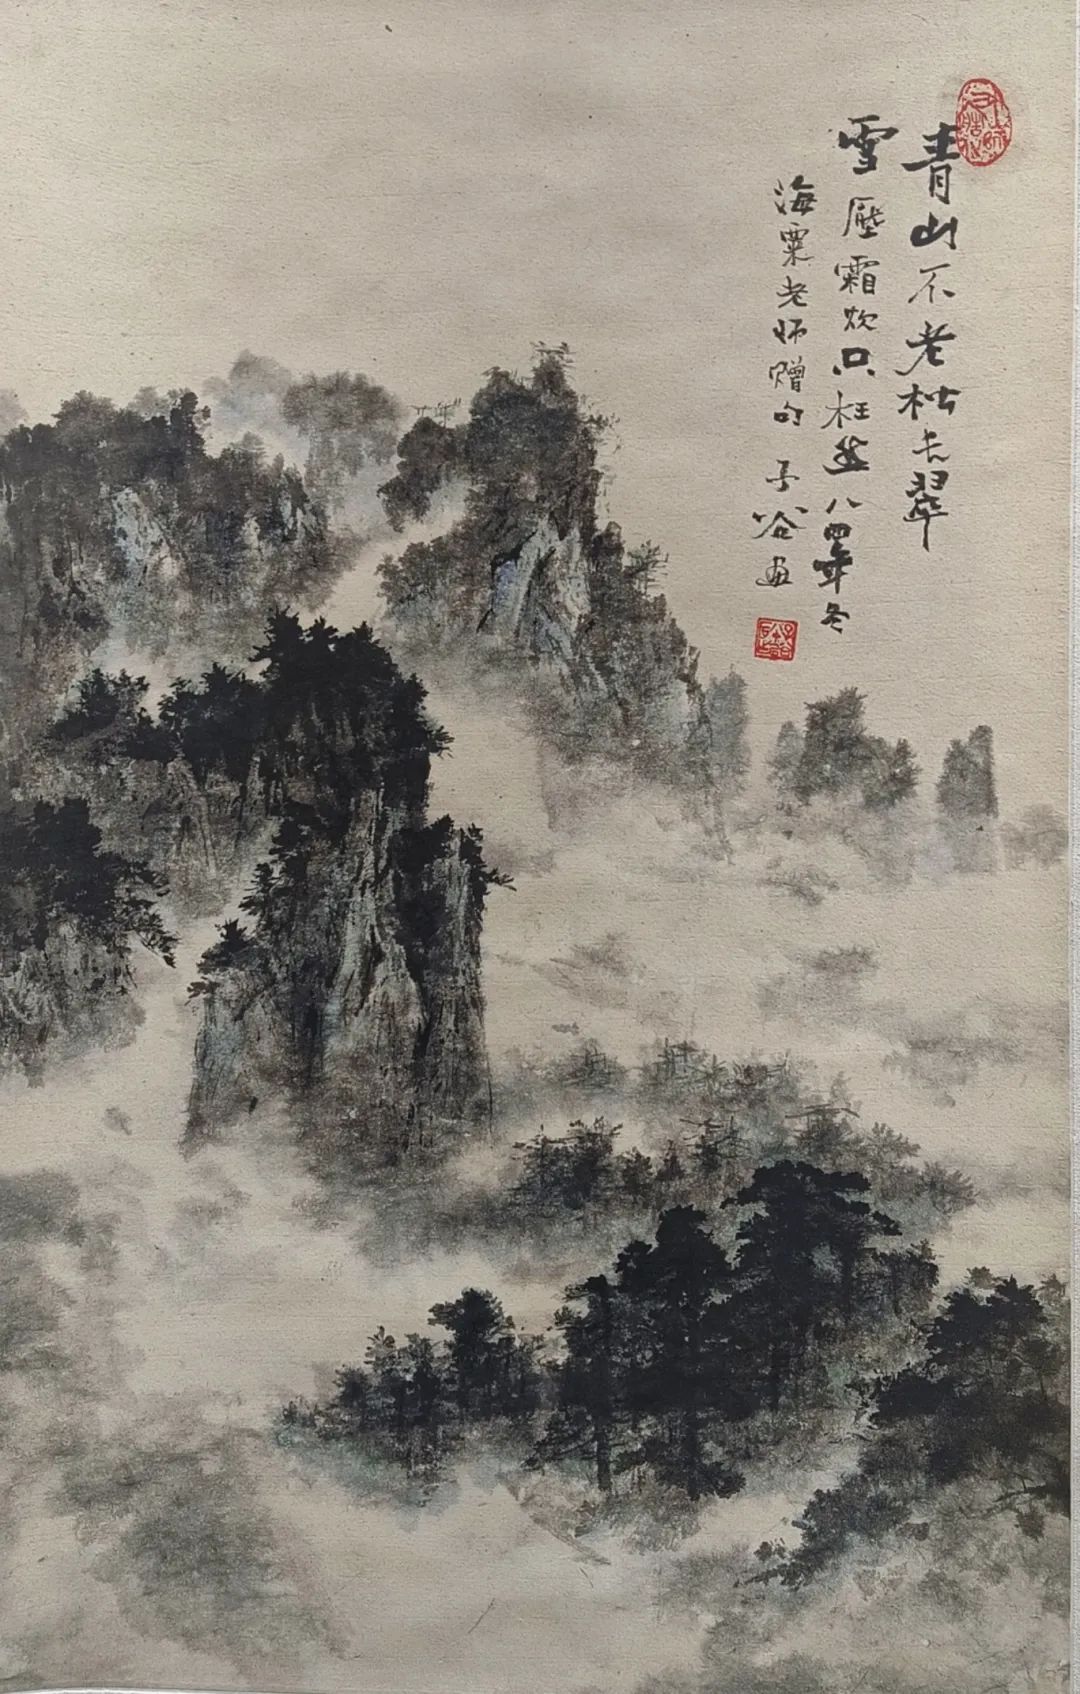 青山不老松长翠
雪壓霜只枉然 八四年冬
海粟老师赠句 子谷画